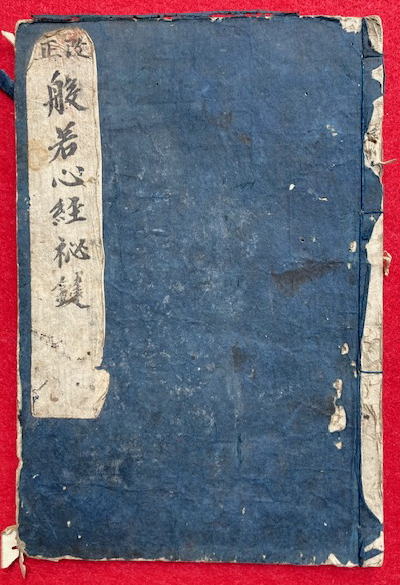 改正
般若心経祕鍵